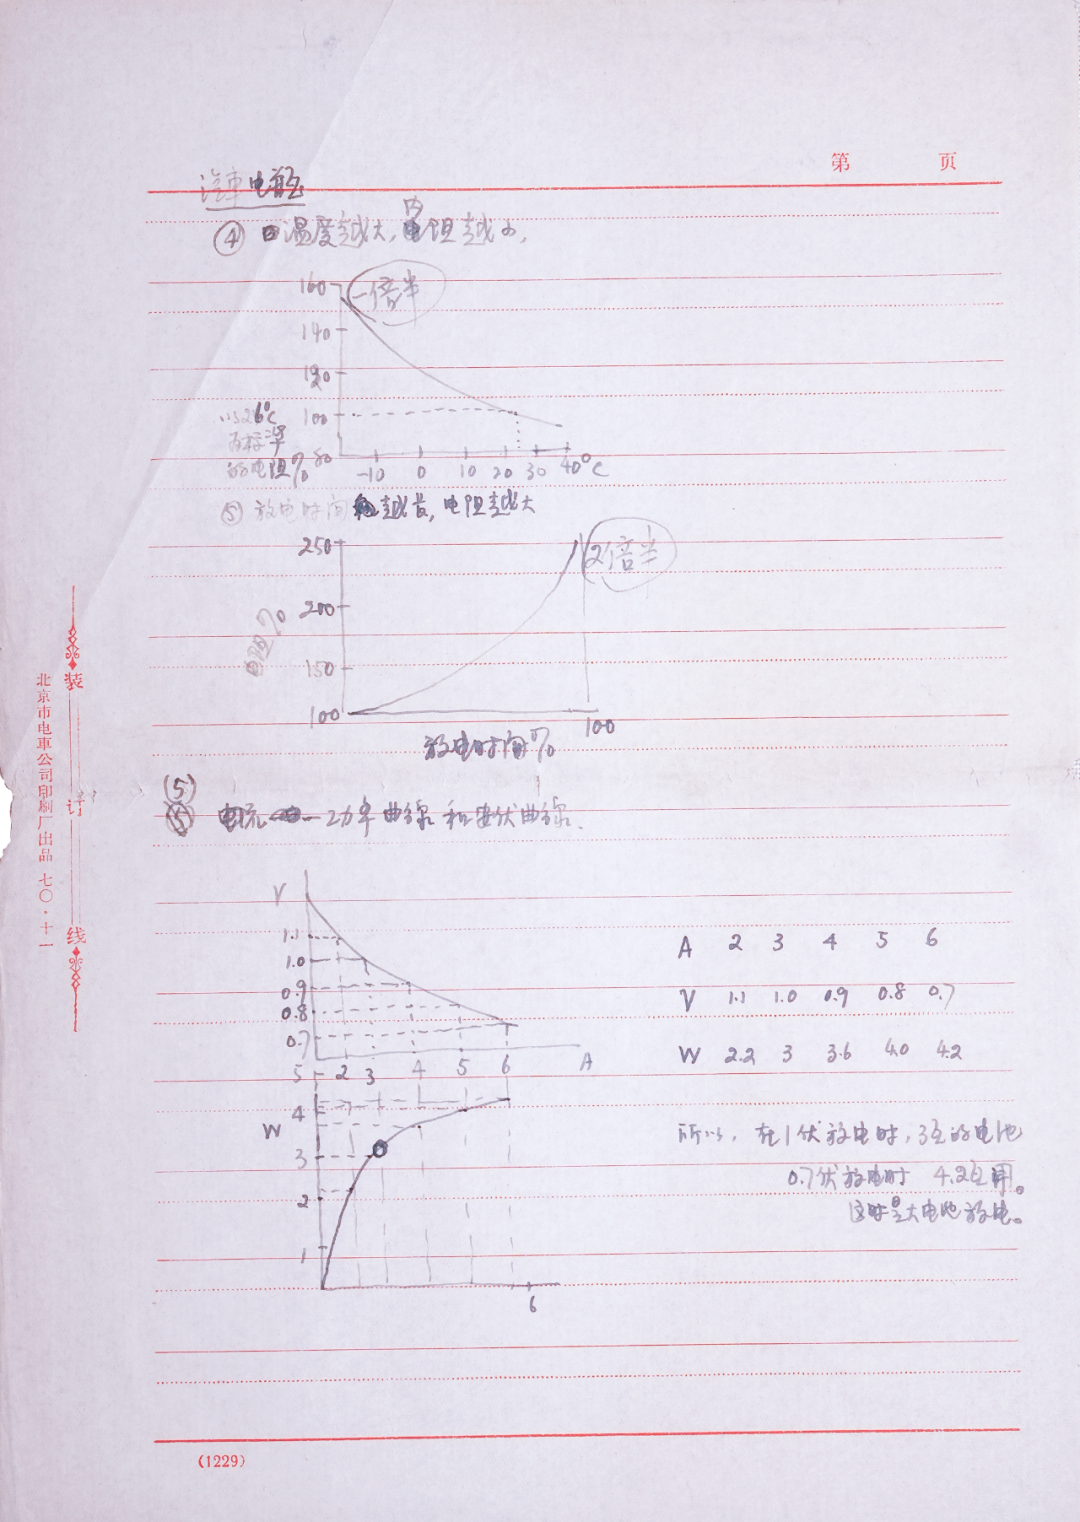 第 页
汽车电瓶
④ 温度越大,内电阻越小,
160
一倍半
140
120
以26°C 100
为标准
的电阻% 80
-10 0 10 20 30 40°C
⑤ 放电时间越长,电阻越大
250
2倍半
200
电阻%
150
100
100
放电时间%
(5)
电流—功率曲线和安伏曲线.
V
1.1
1.0
0.9
0.8
0.7
2 3 4 5 6 A
A 2 3 4 5 6
V 1.1 1.0 0.9 0.8 0.7
W 2.2 3 3.6 4.0 4.2
5
4
W
3
2
1
6
所以,在1伏放电时,3瓦的电池
0.7伏放电时 4.2瓦用。
这时是大电池放电。
装
订
线
北京市电車公司印刷厂出品 七〇·十一
(1229)